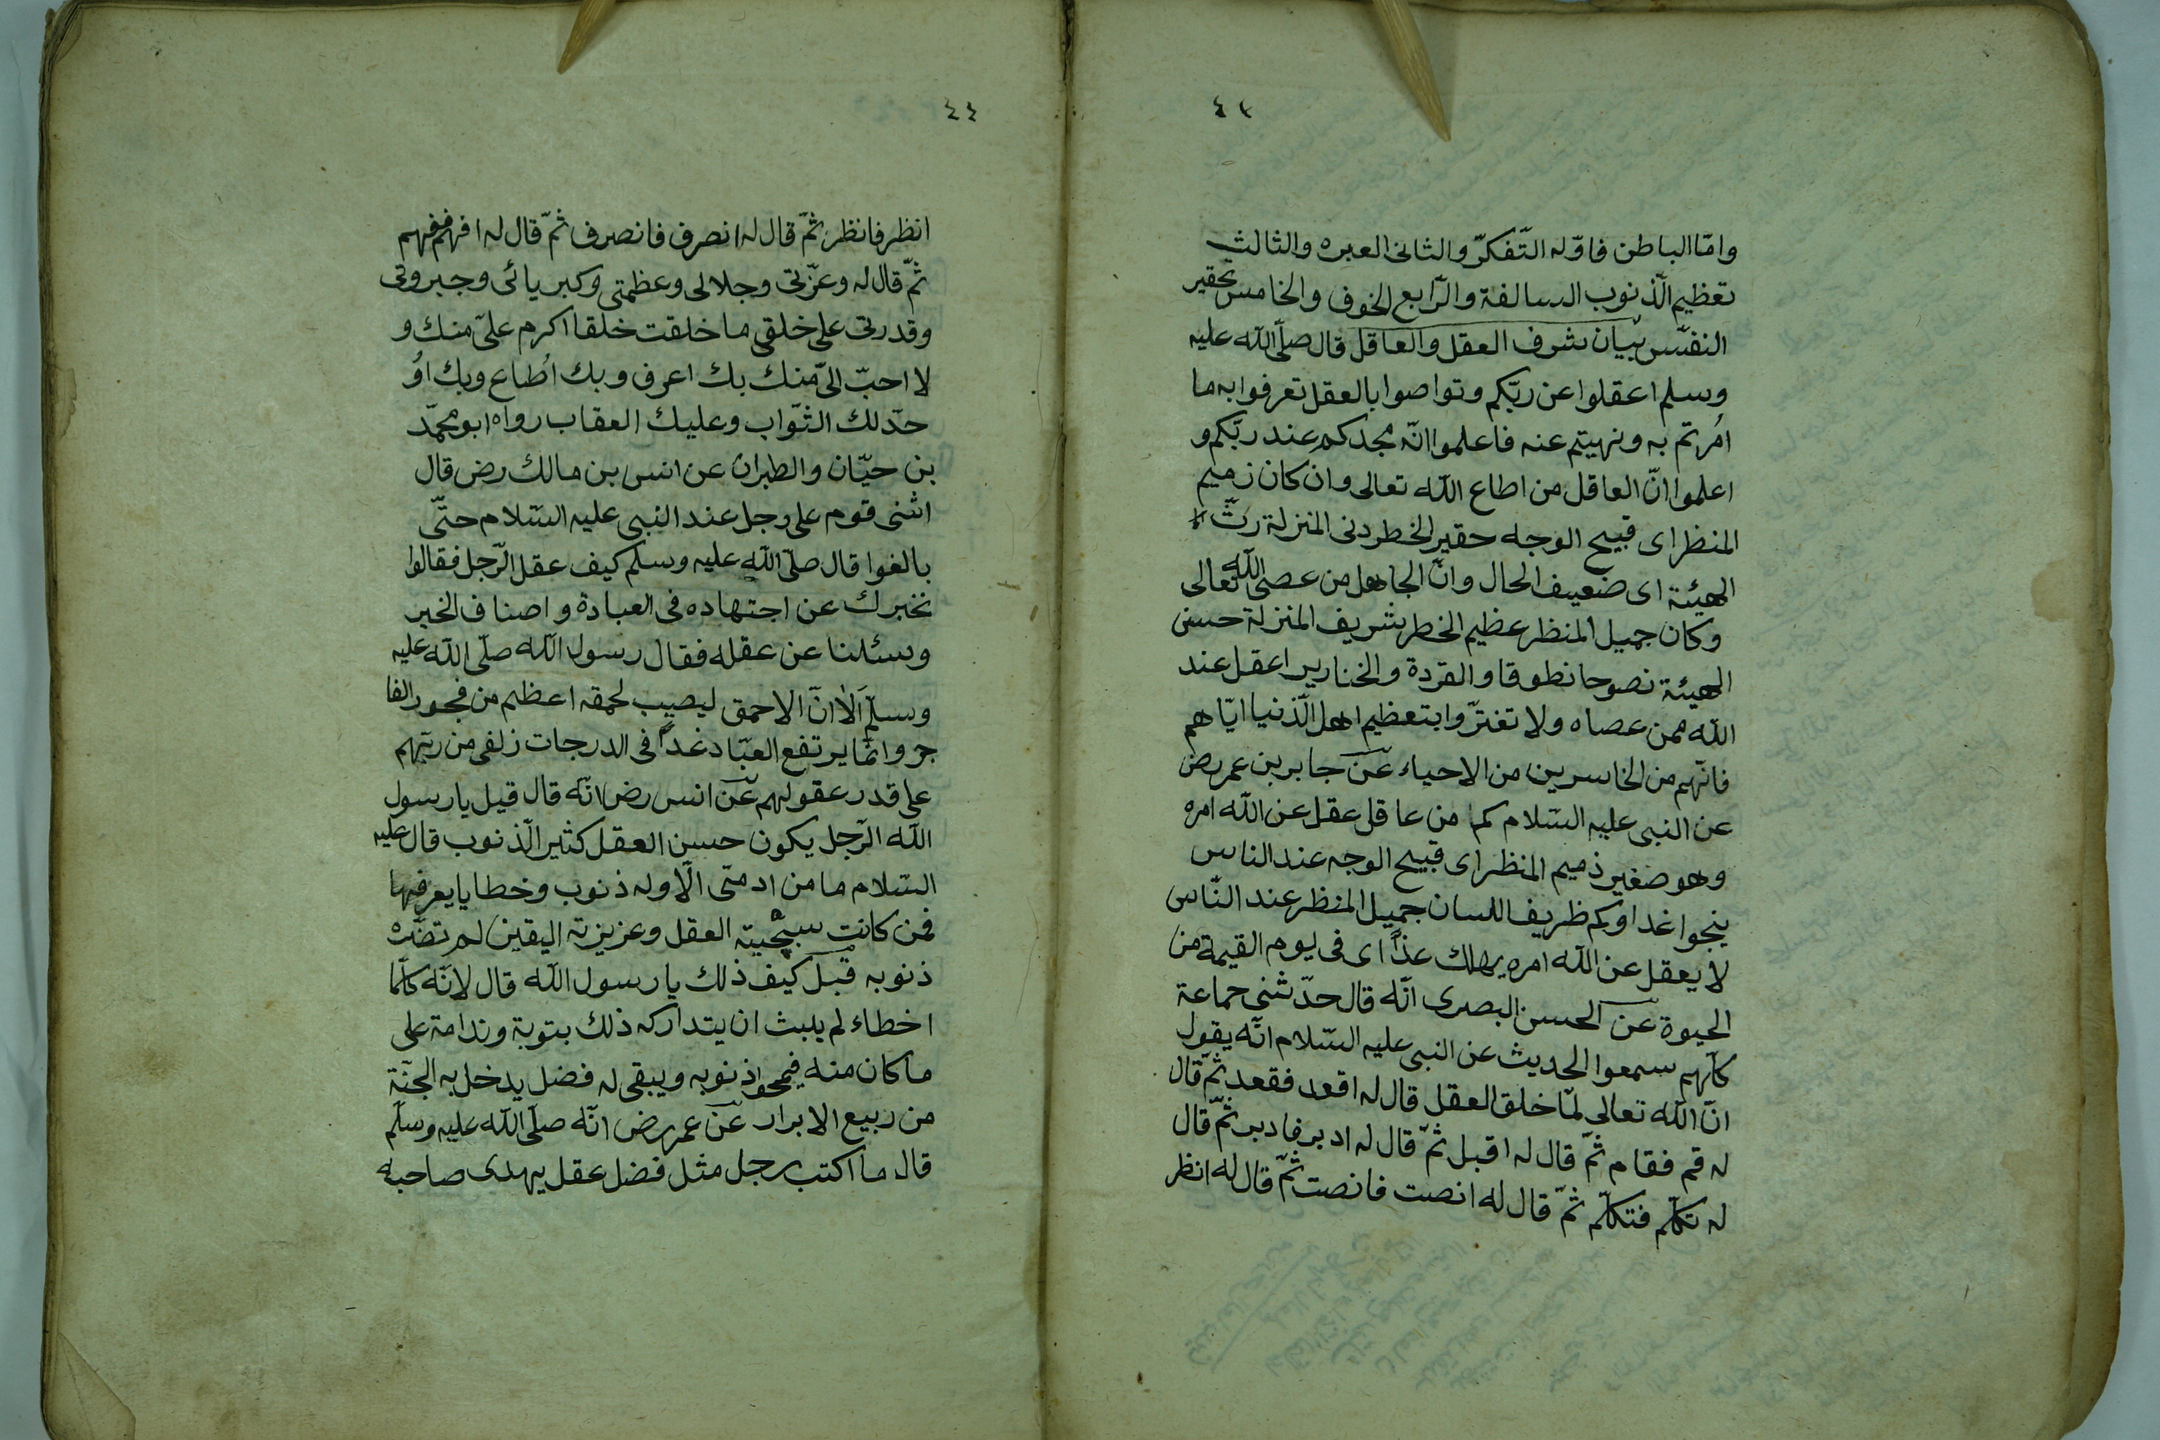 ٤٢
وامّا الباطن فاوّله التّفكرّ والثانى العبره والثالث
تعظيم الّذنوب السالفة والرّابع الخوف والخامس تحقير
النفسّ بيان شرف العقل والعاقل قال صلّى اللّه عليه
وسلم اعقلوا عن ربّكم وتواصوا بالعقل تعرفوا به ما
اُمرتم به ونهيتم عنه فاعلموا انّه مجدكم عند ربّكم و
اعلموا انّ العاقل من اطاع اللّه تعالى وان كان زميم
المنظر اى قبيح الوجه حقير الخطر دنى المنزلة رثّ
الهيئة اى ضعيف الحال وانّ الجاهل من عصى اللّه تعالى
وكان جميل المنظر عظيم الخطر شريف المنزلة حسن
الهيئة نصوحا نطوقا والقردة والخنارير اعقل عند
اللّه ممن عصاه ولا تغترّوا بتعظيم اهل الّدنيا ايّاهم
فانّهم من الخاسرين من الاحياء عن جابر بن عمر رض
عن النبى عليه السّلام كم من عاقل عقل عن اللّه امره
وهو صغير ذميم المنظر اى قبيح الوجه عند الناس
ينجوا غدا وكم ظريف اللسان جميل المنظر عند النّاس
لا يعقل عن اللّه امره يهلك غداً اى فى يوم القيمة من
الحيوة عن الحسن البصرى انّه قال حدّثنى جماعة
كلّهم سمعوا الحديث عن النبى عليه السّلام انّه يقول
انّ اللّه تعالى لمّا خلق العقل قال له اقعد فقعد ثمّ قال
له قم فقام ثمّ قال له اقبل ثمّ قال له ادبر فادبر ثمّ قال
له تكلّم فتكلّم ثمّ قال له انصت فانصت ثمّ قال له انظر
٤٤
انظر فانظر ثمّ قال له انصرف فانصرف ثمّ قال له افهم ففهم
ثمّ قال له وعزّتى وجلالى وعظمتى وكبريائى وجبروتى
وقدرتى على خلقى ما خلقت خلقا اكرم علىّ منك و
لا احبّ الىّ منك بك اعرف وبك اُطاع وبك اوُ
حدّ لك الثّواب وعليك العقاب رواه ابو محمّد
بن حيّان والطبران عن انس بن مالك رض قال
اثنى قوم على رجل عند النبى عليه السّلام حتّى
بالغوا قال صلّى اللّه عليه وسلّم كيف عقل الرّجل فقالوا
نخبرك عن اجتهاده فى العبادة واصناف الخير
وسئلنا عن عقله فقال رسول اللّه صلّى اللّه عليه
وسلّم اَلاَ انّ الاحمق ليصيب لحمقه اعظم من فجور الفا
جر وانّما يرتفع العبّاد غداً فى الدرجات زلفى من ربّهم
على قدر عقولهم عن انس رض انّه قال قيل يا رسول
اللّه الرّجل يكون حسن العقل كثير الّذنوب قال عليه
السّلام ما من ادمىّ الّا وله ذنوب وخطايا يعرفها
فمن كانت سجيته العقل وعزيزته اليقين لم تضرّه
ذنوبه قبل كيف ذلك يا رسول اللّه قال لانّه كلّما
اخطاء لم يلبث ان يتداركه ذلك بتوبة وندامة على
ما كان منه فيمحوا ذنوبه ويبقى له فضل يدخل به الجنّة
من ربيع الابرار عن عمر رض انّه صلّى اللّه عليه وسلّم
قال ما اكتب رجل مثل فضل عقل يهدى صاحبه